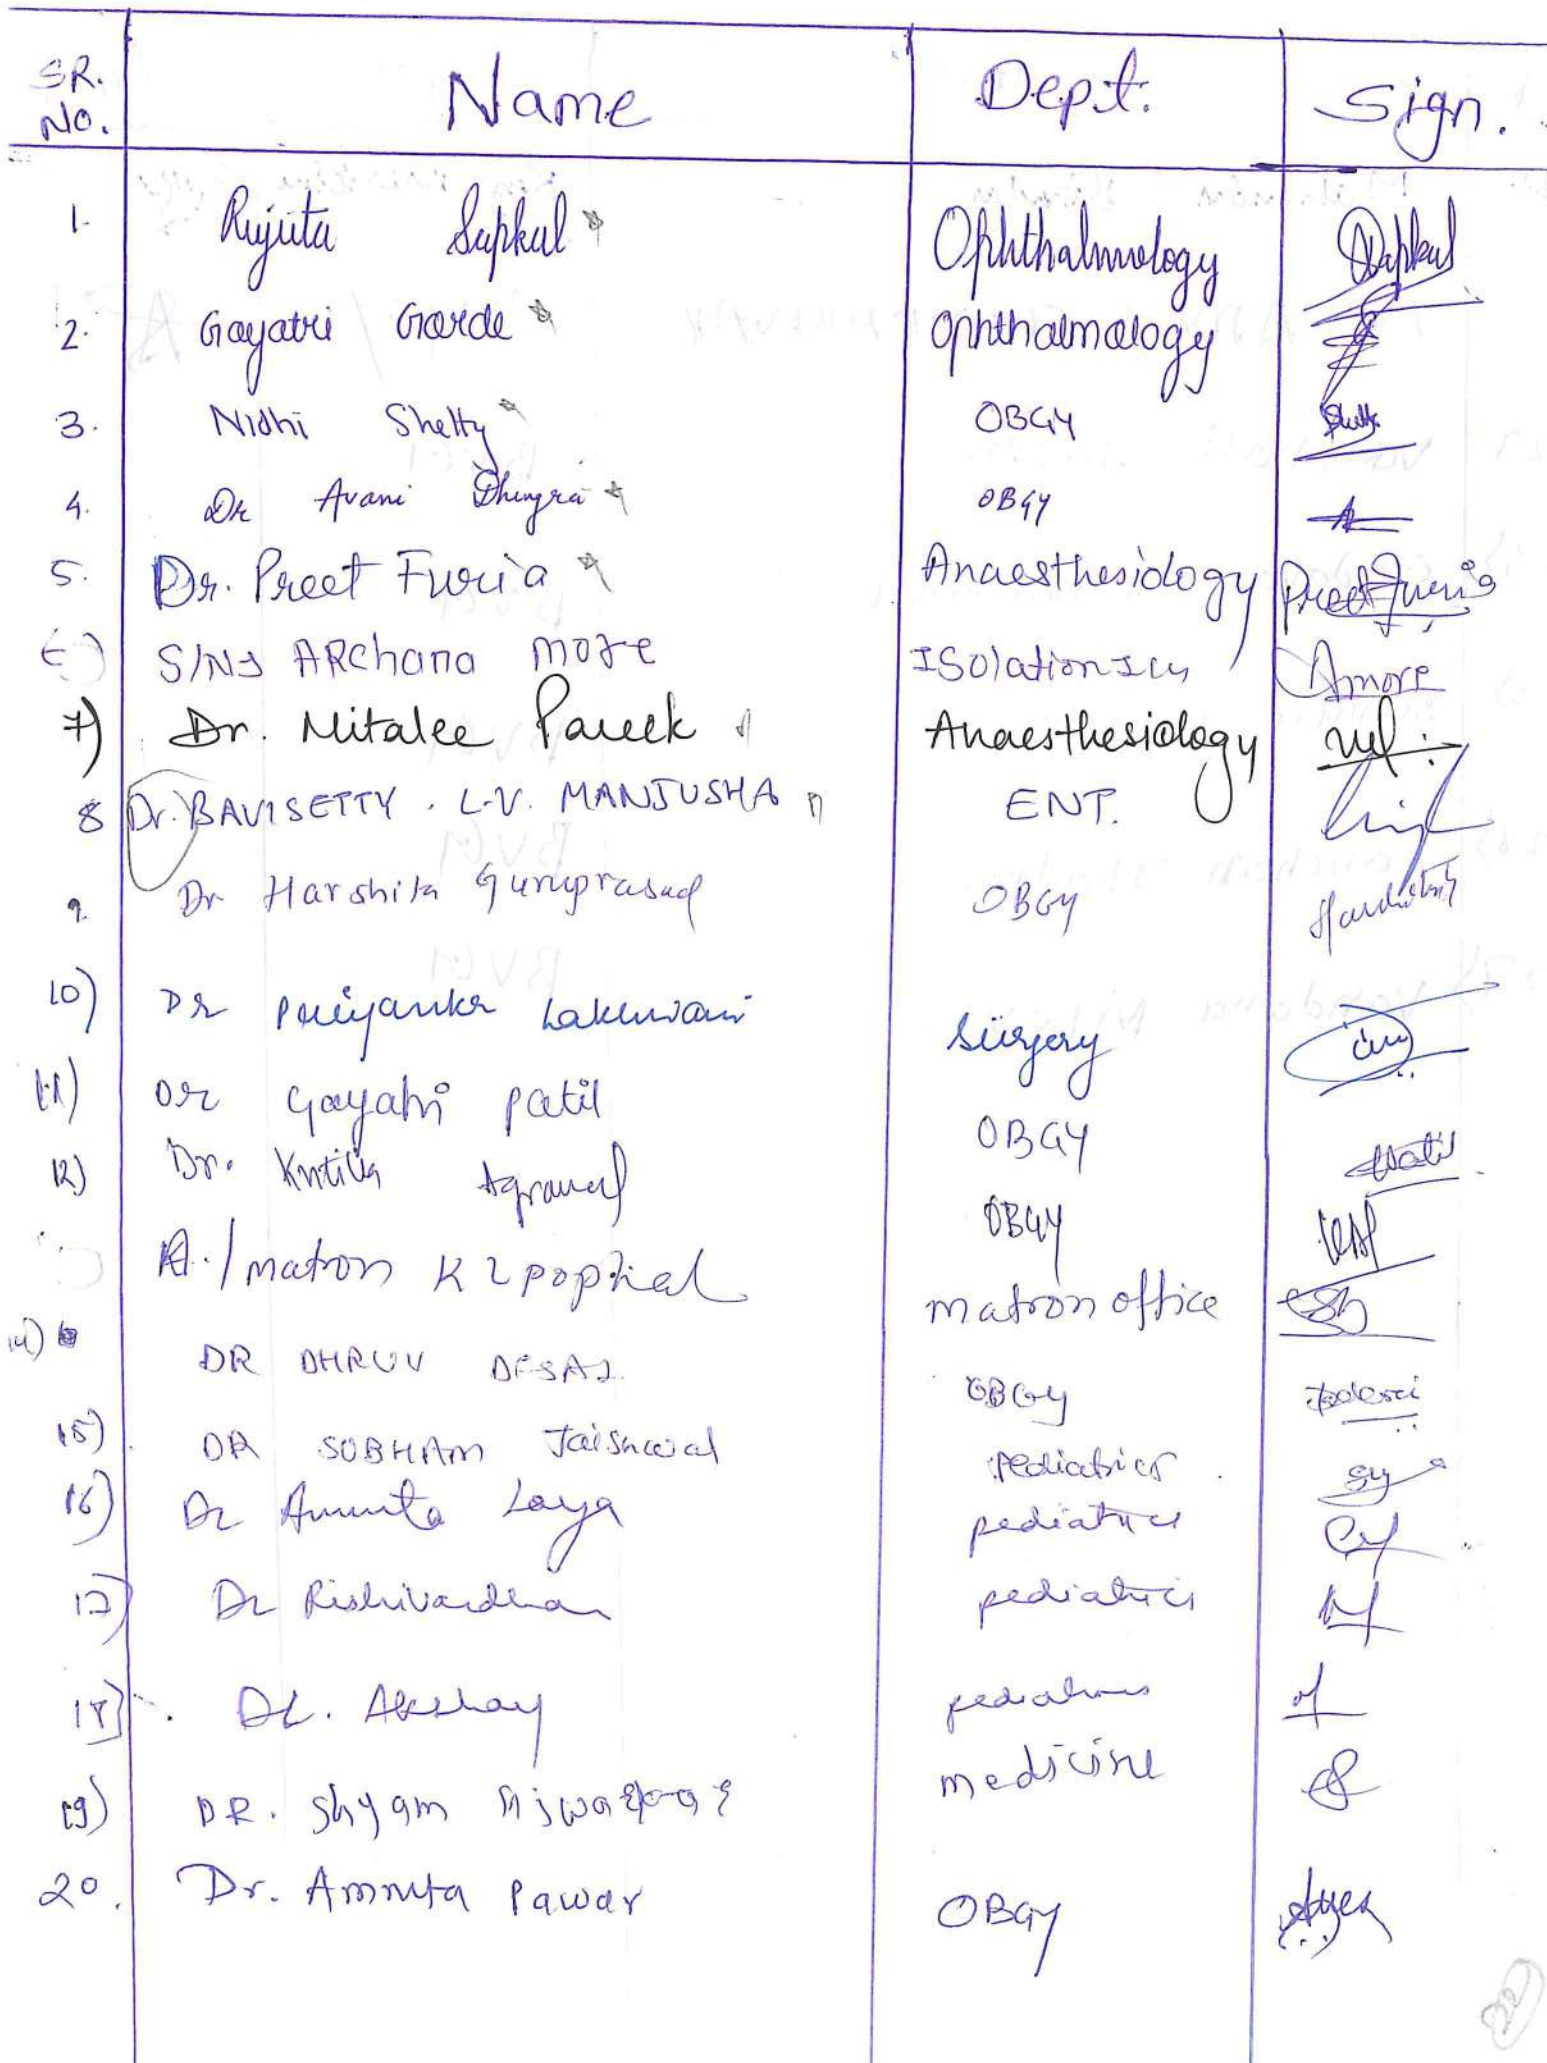 SR. NO. Name Dept. Sign.
1. Rujuta Sapkal Ophthalmology Sapkal
2. Gayatri Garde Ophthalmology
3. Nidhi Shetty OBGY
4. Dr Avani Dhingra OBGY
5. Dr. Preet Furia Anaesthesiology Preet Furia
6) S/N ARchana more ISolation Icu Amore
7) Dr. Mitalee Pareek Anaesthesiology
8 Dr. BAVISETTY . L.V. MANJUSHA ENT.
9. Dr Harshita Guruprasad OBGY
10) Dr Priyanka Lakhwani Surgery
11) Dr Gayatri Patil OBGY Patil
12) Dr. Kritika Agrawal OBGY
A./matron K 2 pophal matron office
14) DR DHRUV DESAI OBGY
15) DR SUBHAM Jaiswal Pediatrics
16) Dr Amruta Laya pediatrics
17) Dr Rishivardhan pediatrics
18) Dr. Akshay pediatrics
19) DR. Shyam medicine
20. Dr. Amruta Pawar OBGY
20